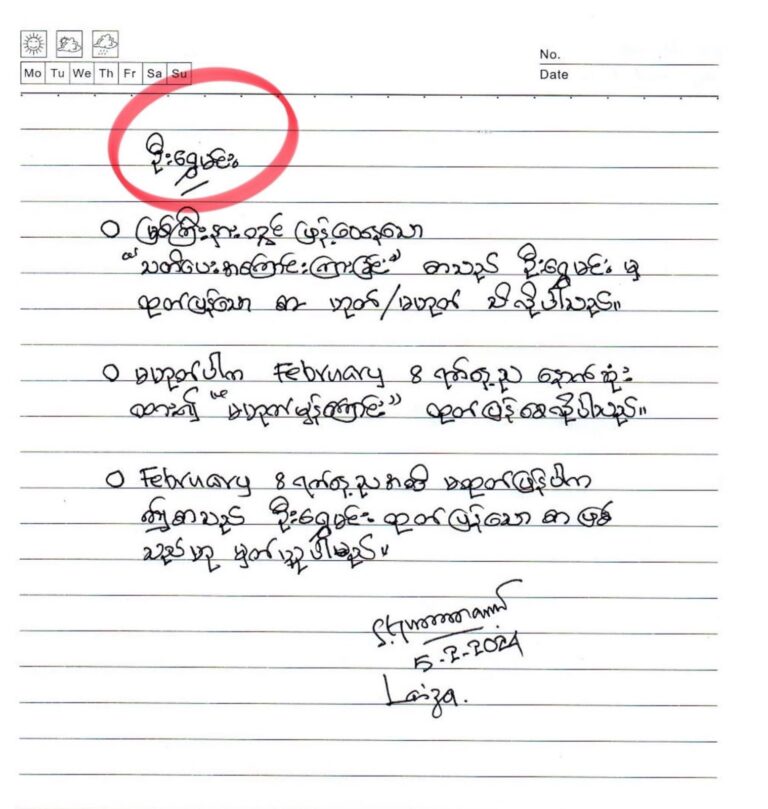 No.
Date
Mo Tu We Th Fr Sa Su
ဦးရွှေမင်း
မြစ်ကြီးနားတွင် ဖြန့်ဝေနေသော
"သတိပေးအကြောင်းကြားခြင်း" စာသည် ဦးရွှေမင်း မှ
ထုတ်ပြန်သော စာ ဟုတ်/မဟုတ် သိလိုပါသည်။
မဟုတ်ပါက February 8 ရက်နေ့ည နောက်ဆုံး
ထား၍ "မဟုတ်မှန်ကြောင်း" ထုတ်ပြန်စေလိုပါသည်။
February 8 ရက်နေ့ညအထိ မထုတ်ပြန်ပါက
ဤစာသည် ဦးရွှေမင်း ထုတ်ပြန်သော စာ ဖြစ်
သည်ဟု မှတ်ယူပါမည်။
5-2-2024
Laiza.